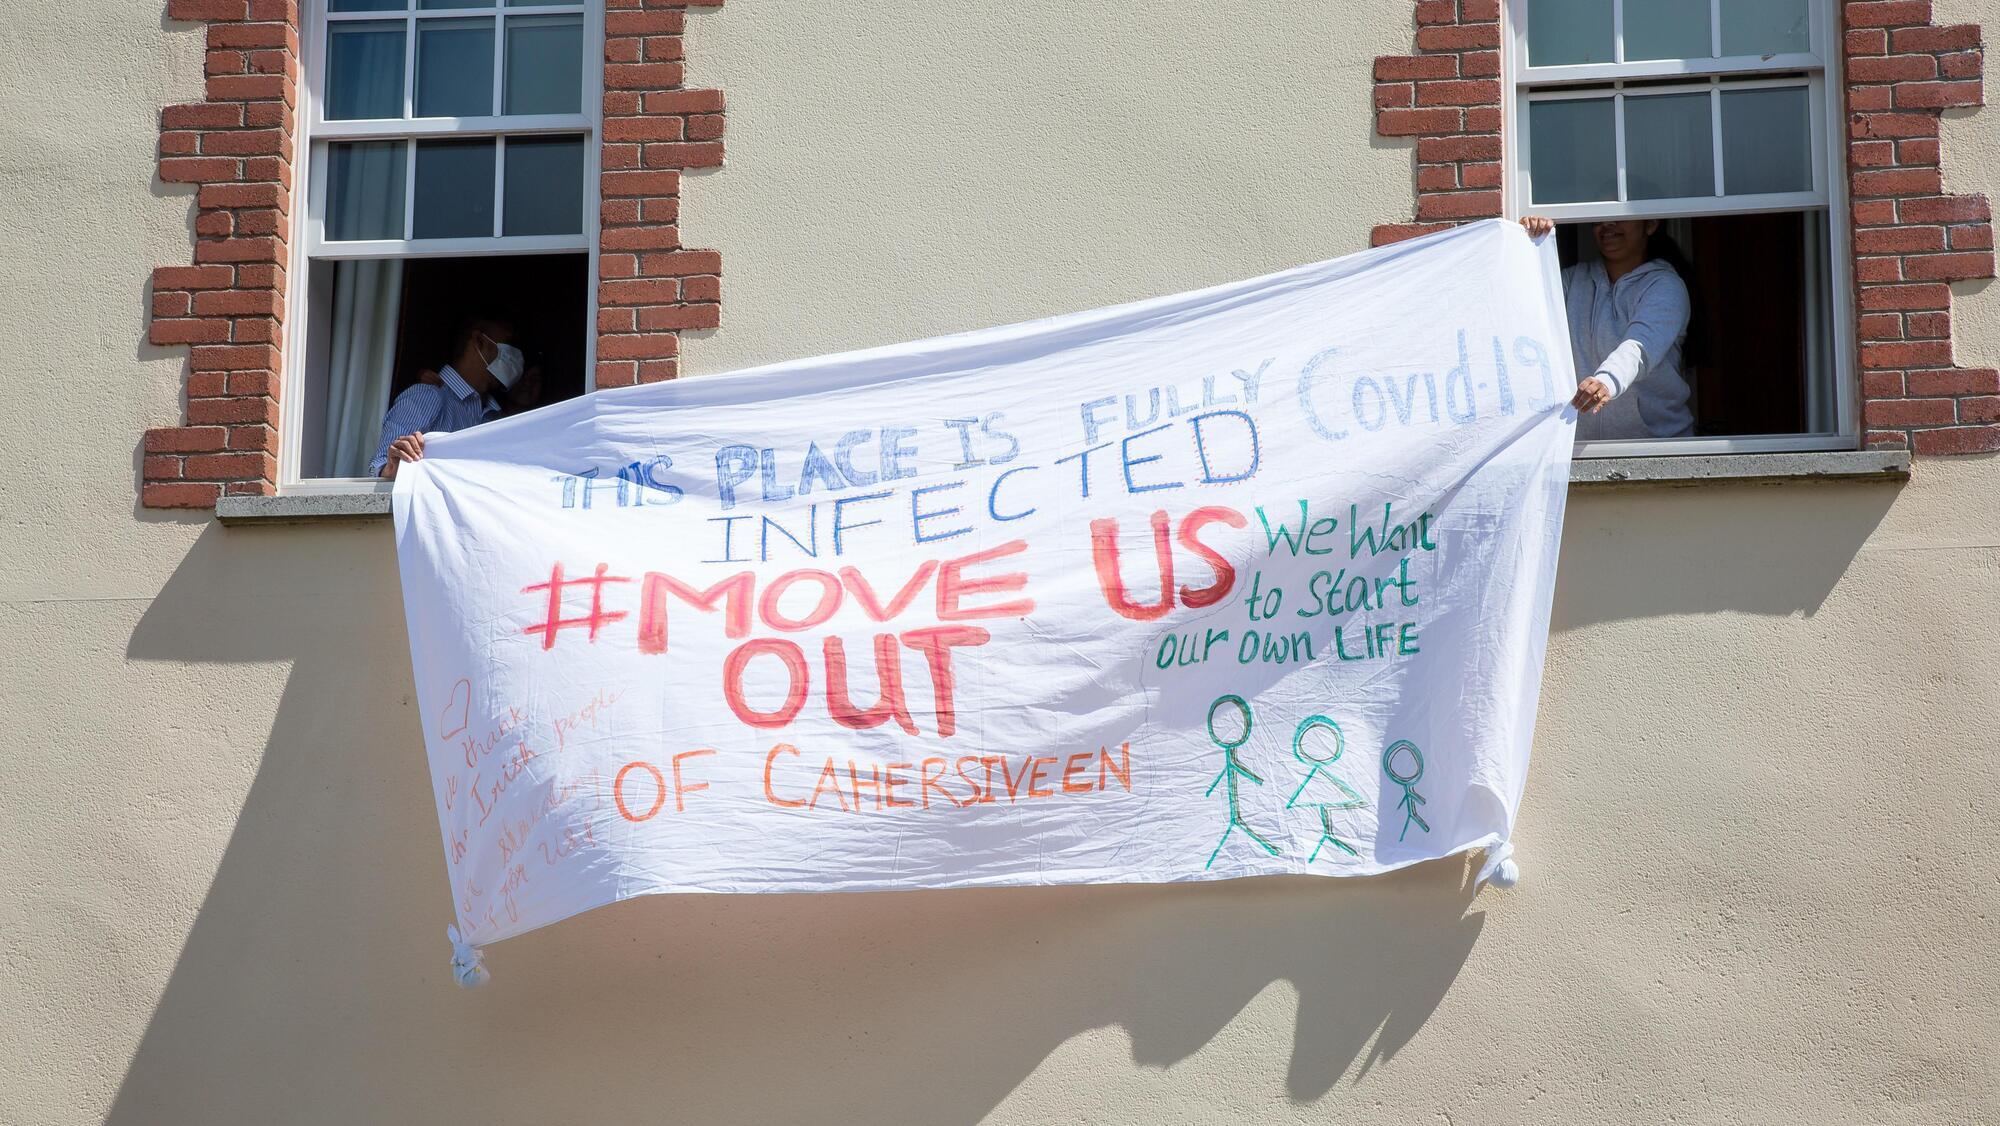 THIS PLACE IS FULLY Covid-19
INFECTED
#MOVE US
OUT
OF CAHERSIVEEN
We Want
to Start
our own LIFE
we thank
Irish people
for US!